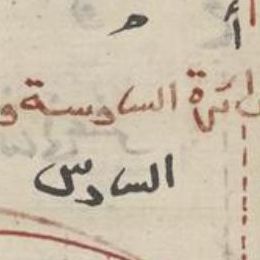 أ م
دائرة السادسة و
السادس